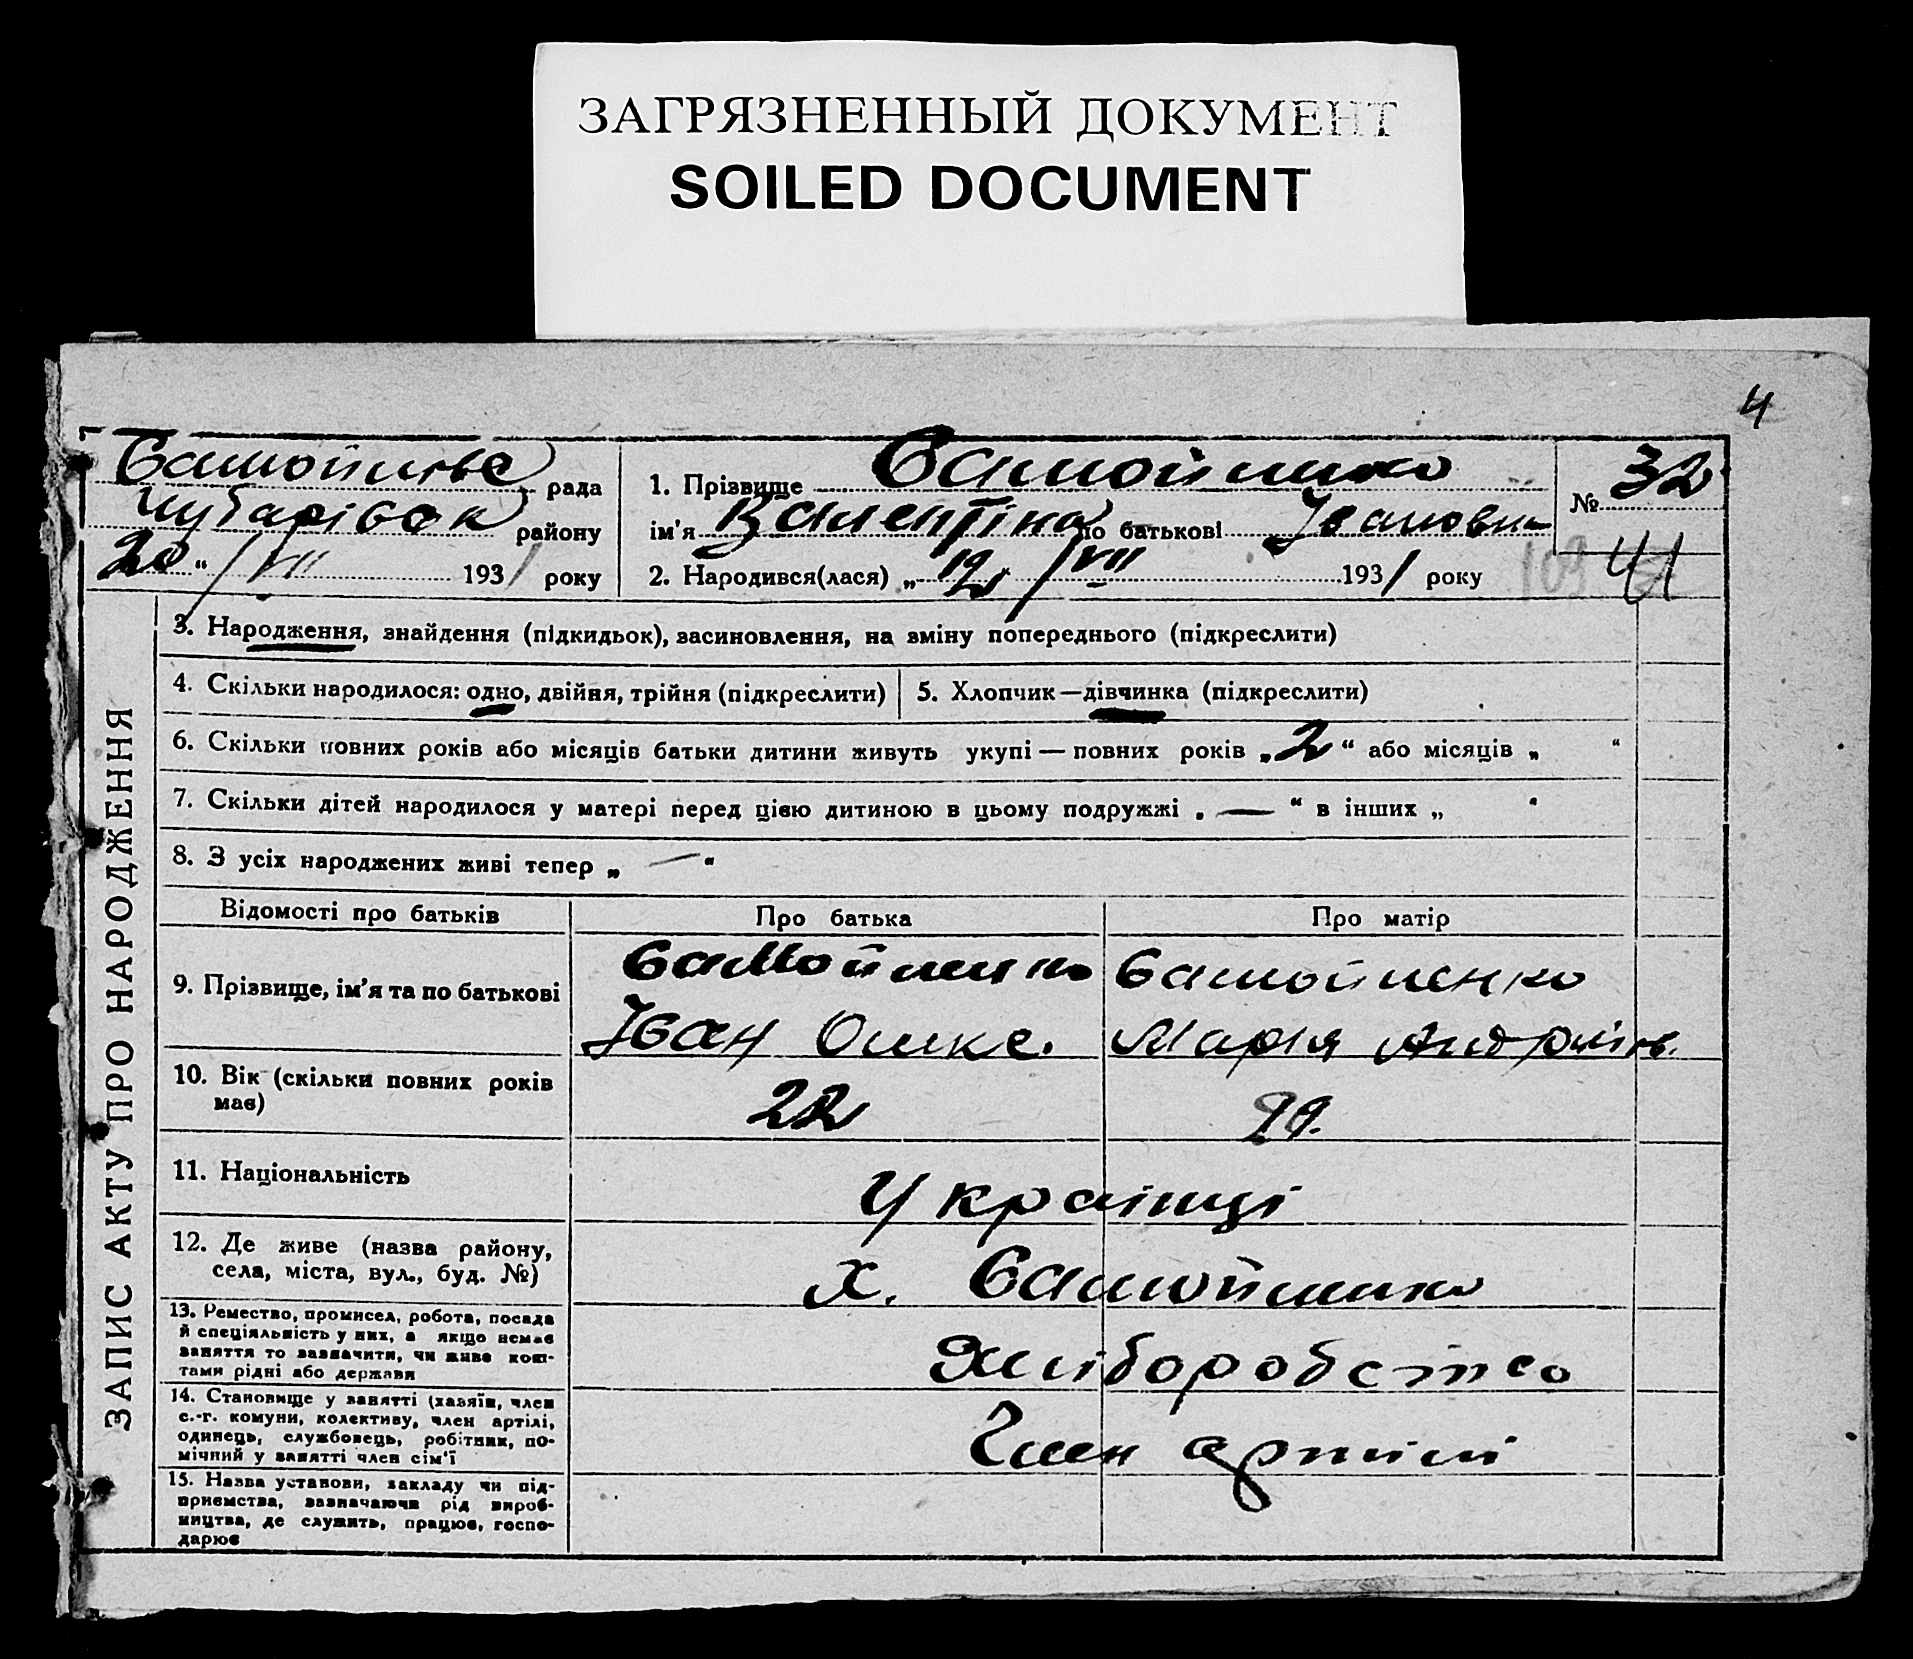 ЗАГРЯЗНЕННЫЙ ДОКУМЕНТ
SOILED DOCUMENT
4
рада
Чубарівськ
району
20 “ / VII 1931 року
1. Прізвище Самойленко
ім'я Валентина по батькові Івановна
2. Народився(лася) „ 12 “ / VII 1931 року
№ 32
109 41
ЗАПИС АКТУ ПРО НАРОДЖЕННЯ
3. Народження, знайдення (підкидьок), засиновлення, на зміну попереднього (підкреслити)
4. Скільки народилося: одно, двійня, трійня (підкреслити)
5. Хлопчик — дівчинка (підкреслити)
6. Скільки повних років або місяців батьки дитини живуть укупі — повних років „ 2 “ або місяців „ “
7. Скільки дітей народилося у матері перед цією дитиною в цьому подружжі „ — “ в інших „ “
8. З усіх народжених живі тепер „ — “
Відомості про батьків
Про батька
Про матір
9. Прізвище, ім'я та по батькові
Самойленко
Іван Олекс.
Самойленко
Марія Андріїв.
10. Вік (скільки повних років
має)
22
11. Національність
Українці
12. Де живе (назва району,
села, міста, вул., буд. №)
х. Самойленко
13. Ремество, промисел, робота, посада
й спеціяльність у них, а якщо немає
заняття то зазначити, чи живе кош-
тами рідні або держави
Хліборобство
14. Становище у занятті (хазяїн, член
с.-г. комуни, колективу, член артілі,
одинець, службовець, робітник, по-
мічний у занятті член сім'ї
Член артілі
15. Назва установи, закладу чи під-
приємства, зазначаючи рід вироб-
ництва, де служить, працює, госпо-
дарює